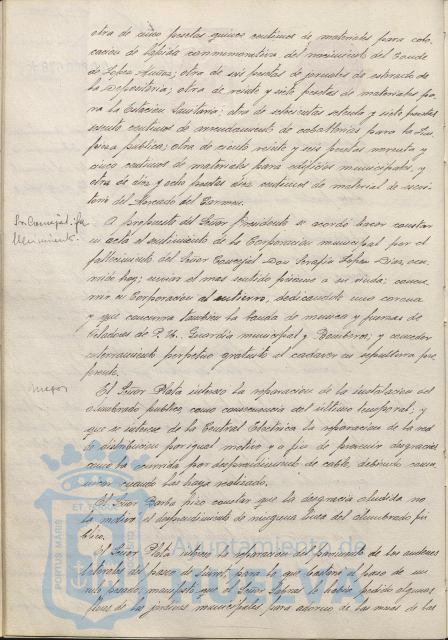 otra de cinco pesetas quince centimos de materiales para colo-
cacion de lápida conmemorativa del nacimiento del Conde
de Lopez Muñoz; otra de seis pesetas de jornales de
la Depositaria; otra de veinte y siete pesetas de materiales pa-
ra la Estacion Sanitaria; otra de setecientas setenta y siete pesetas
sesenta centimos de arrendamiento de caballerias para la Lim-
pieza publica; otra de ciento veinte y seis pesetas noventa y
cinco centimos de materiales para edificios municipales, y
otra de diez y ocho pesetas diez centimos de material de escri-
torio del Mercado del Carmen.
Sr. Concejal. fa-
llecimiento.
A propuesta del Señor Presidente se acordó hacer constar
en acta el sentimiento de la Corporacion municipal por el
fallecimiento del Señor Concejal Don Serafin Lopez Diaz, ocu-
rrido hoy; enviar el mas sentido pésame a su viuda; concu-
rrir en Corporacion al entierro, dedicandole una corona
y que concurra tambien la banda de musica y fuerzas de
Celadores de P. U., Guardia municipal y Bomberos; y conceder
enterramiento perpetuo gratuito al cadaver en sepultura pre-
ferente.
Ruegos
El Señor Plata interesó la reparacion de la instalacion del
alumbrado publico, como consecuencia del ultimo temporal, y
que se interese de la Central Electrica la reparacion de la red
de distribucion por igual motivo y a fin de prevenir desgracias
como la ocurrida por desprendimiento de cable, debiendo comu-
nicar cuando las haya realizado.
El Señor Barba hizo constar que la desgracia aludida no
la motivó el desprendimiento de ninguna linea del alumbrado pú-
blico.
El Señor Plata interesó la reparacion del pavimento de los andenes
laterales del paseo de para lo que bastaria el paso de un
rulo pesado; manifestó que el Señor le habia pedido algunas
flores de los jardines municipales para adorno de las mesas de las
Ayuntamiento de
HUELVA
PORTUS MARIS
ET TERRAE